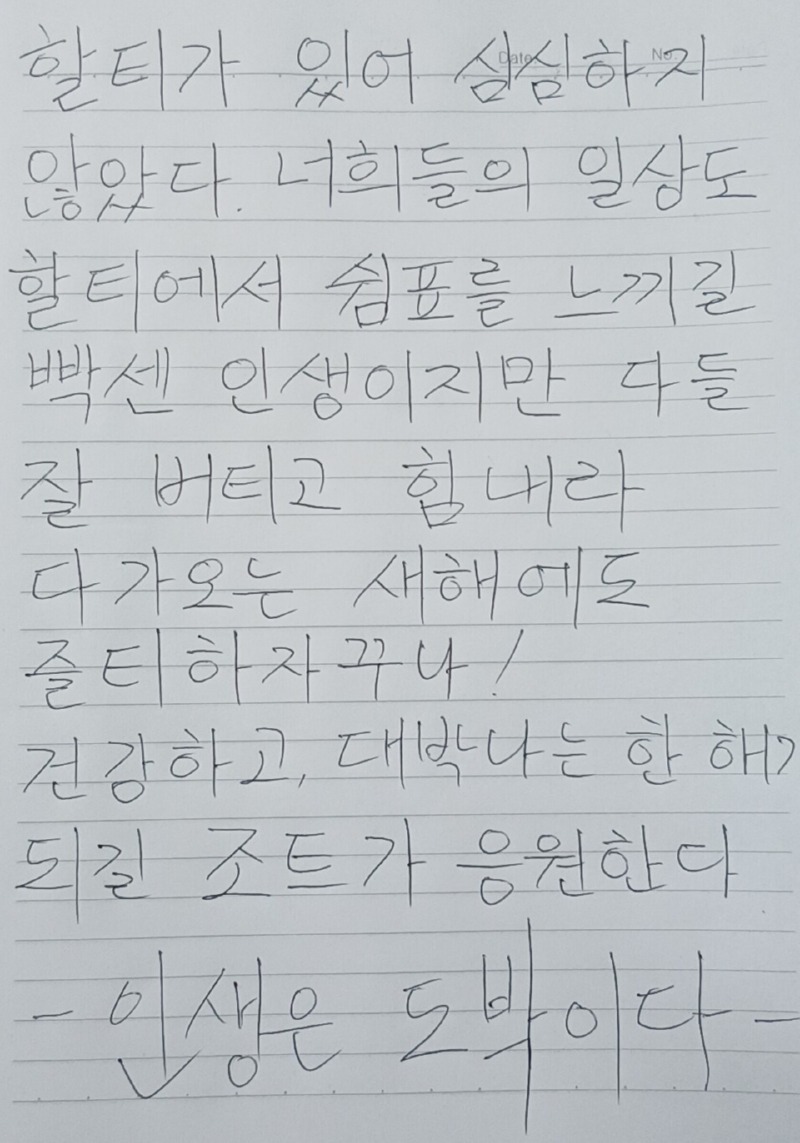 Date No.
할티가 있어 심심하지
않았다. 너희들의 일상도
할티에서 쉼표를 느끼길
빡센 인생이지만 다들
잘 버티고 힘내라
다가오는 새해에도
즐티하자꾸나!
건강하고, 대박나는 한 해가
되길 조트가 응원한다
- 인생은 도박이다 -